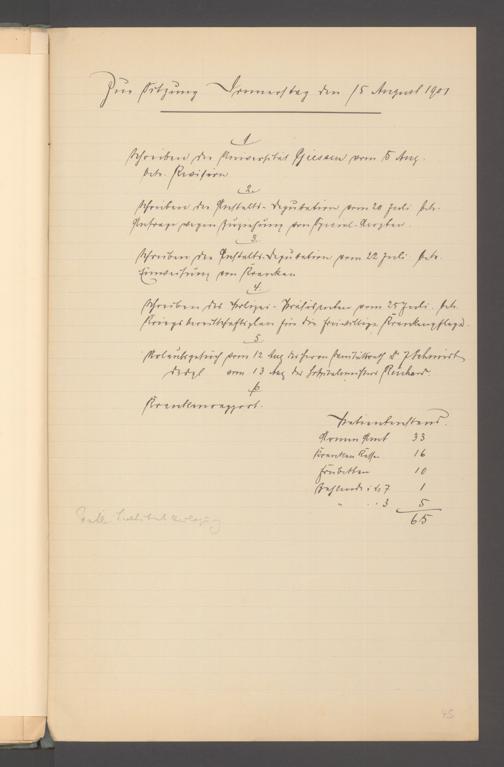 Zur Sitzung Donnerstag den 15 August 1901
1.
Schreiben der Universität Giessen vom 5 Aug.
betr. Revisoren
2.
Schreiben der Anstalts-Deputation vom 20 Juli betr.
Anfrage wegen Zuziehung von Spezial-Aerzten.
3.
Schreiben der Anstalts-Deputation vom 22 Juli betr.
Einweisung von Kranken
4.
Schreiben des Polizei-Präsidenten vom 25 Juli betr.
Kriegsbereitschaftsplan für die freiwillige Krankenpflege.
5.
Urlaubsgesuch vom 12 Aug des Herrn Sanitätsrath Dr
desgl vom 13 Aug des Hospitalmeisters Reinhard
6.
Krankenrapport.
Patientenstand.
Armen Amt 33
Kranken Kasse 16
Freibetten 10
Zahlende 7 1
" 3 5
65
45